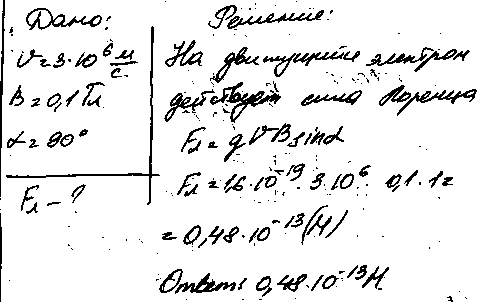 Дано:
V=3·10⁶ м/с
B=0,1 Тл
α=90°
Fл - ?
Решение:
На движущийся электрон
действует сила Лоренца
Fл = qVBsinα
Fл = 1,6·10⁻¹⁹ · 3·10⁶ · 0,1 · 1 =
= 0,48·10⁻¹³ (Н)
Ответ: 0,48·10⁻¹³ Н.